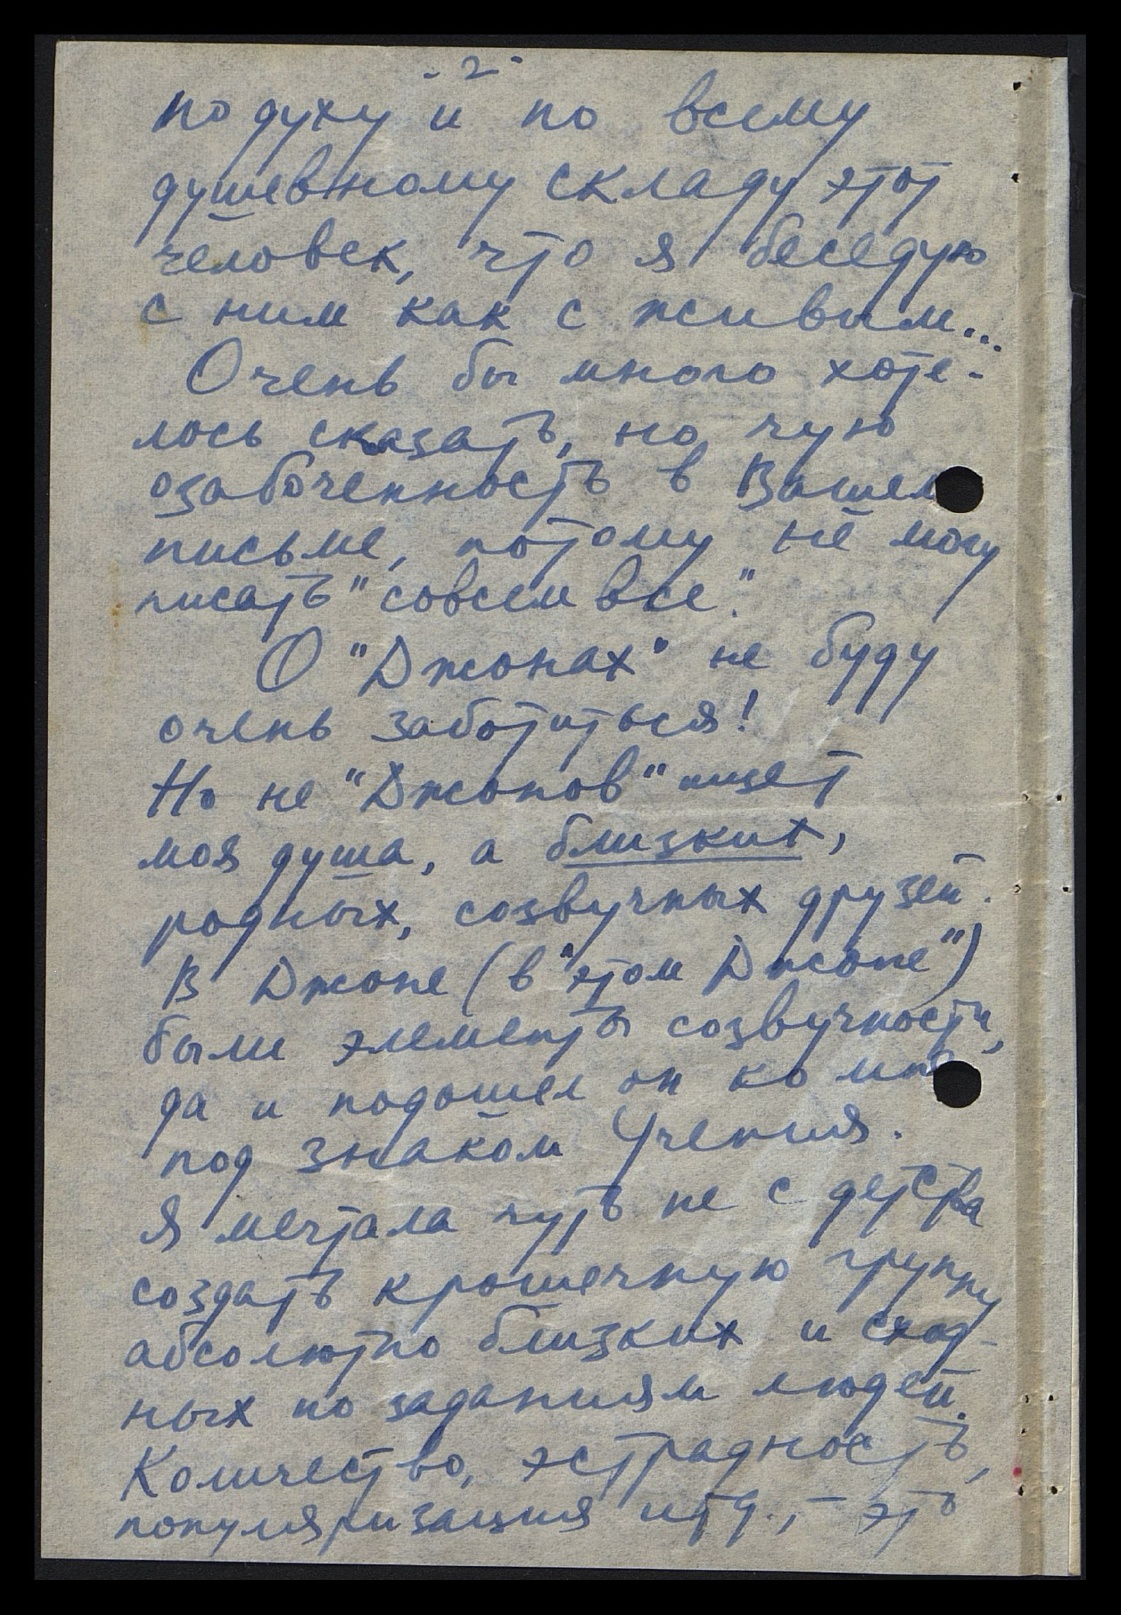 - 2 -
по духу и по всему
душевному складу этот
человек, что я беседую
с ним как с живым...
Очень бы много хоте-
лось сказать, но чую
озабоченность в Вашем
письме, потому не могу
писать "совсем все".
О "Джонах" не буду
очень заботиться!
Но не "Джонов" ищет
моя душа, а близких,
родных, созвучных друзей.
В Джоне (в "этом Джоне")
были элементы созвучности,
да и подошел он ко мне
под знаком Учения.
Я мечтала чуть не с детства
создать крошечную группу
абсолютно близких и сход-
ных по заданиям людей.
Количество, эстрадность,
популяризация итд., - это